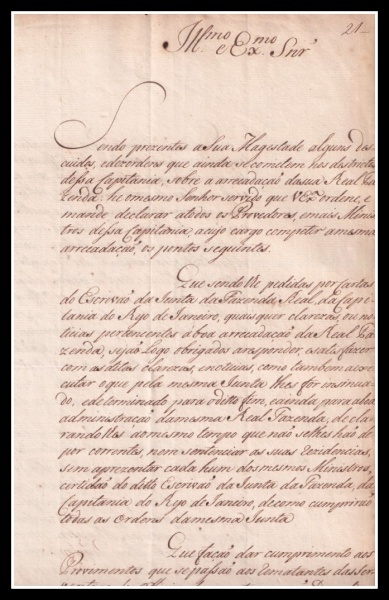 21
Ill.mo e Ex.mo Snr.
Sendo prezentes a Sua Magestade alguns des
cuidos, e dezordens que ainda se cometem nos destrictos
dessa Capitania, sobre a arrecadação da sua Real Fa
zenda: he o mesmo Senhor servido que V. Ex.ª ordene, e
mande declarar a todos os Provedores, e mais Minis
tros dessa Capitania, a cujo cargo competir a mesma
arrecadação, os pontos seguintes.
Que sendo lhe pedidas por cartas
do Escrivão da Junta da Fazenda Real, da Capi
tania do Ryo de Janeiro, quaisquer clarezas, ou no
ticias pertencentes á boa arrecadação da Real Fa
zenda, sejão logo obrigados a responder, e satisfazer
com as ditas clarezas, e noticias, como tambem a exe
cutar o que pela mesma Junta lhes fôr insinua
do, e determinado para o ditto fim, e ainda, para a boa
administração da mesma Real Fazenda, decla
rando lhes ao mesmo tempo que não selhes hão de
por correntes, nem sentenciar as suas rezidencias,
sem aprezentar cada hum dos mesmos Ministros,
certidão do ditto Escrivão da Junta da Fazenda, da
Capitania do Ryo de Janeiro, de como cumprirão
todas as Ordens da mesma Junta
Que fação dar cumprimento aos
Provimentos que se passão aos rematantes das ser